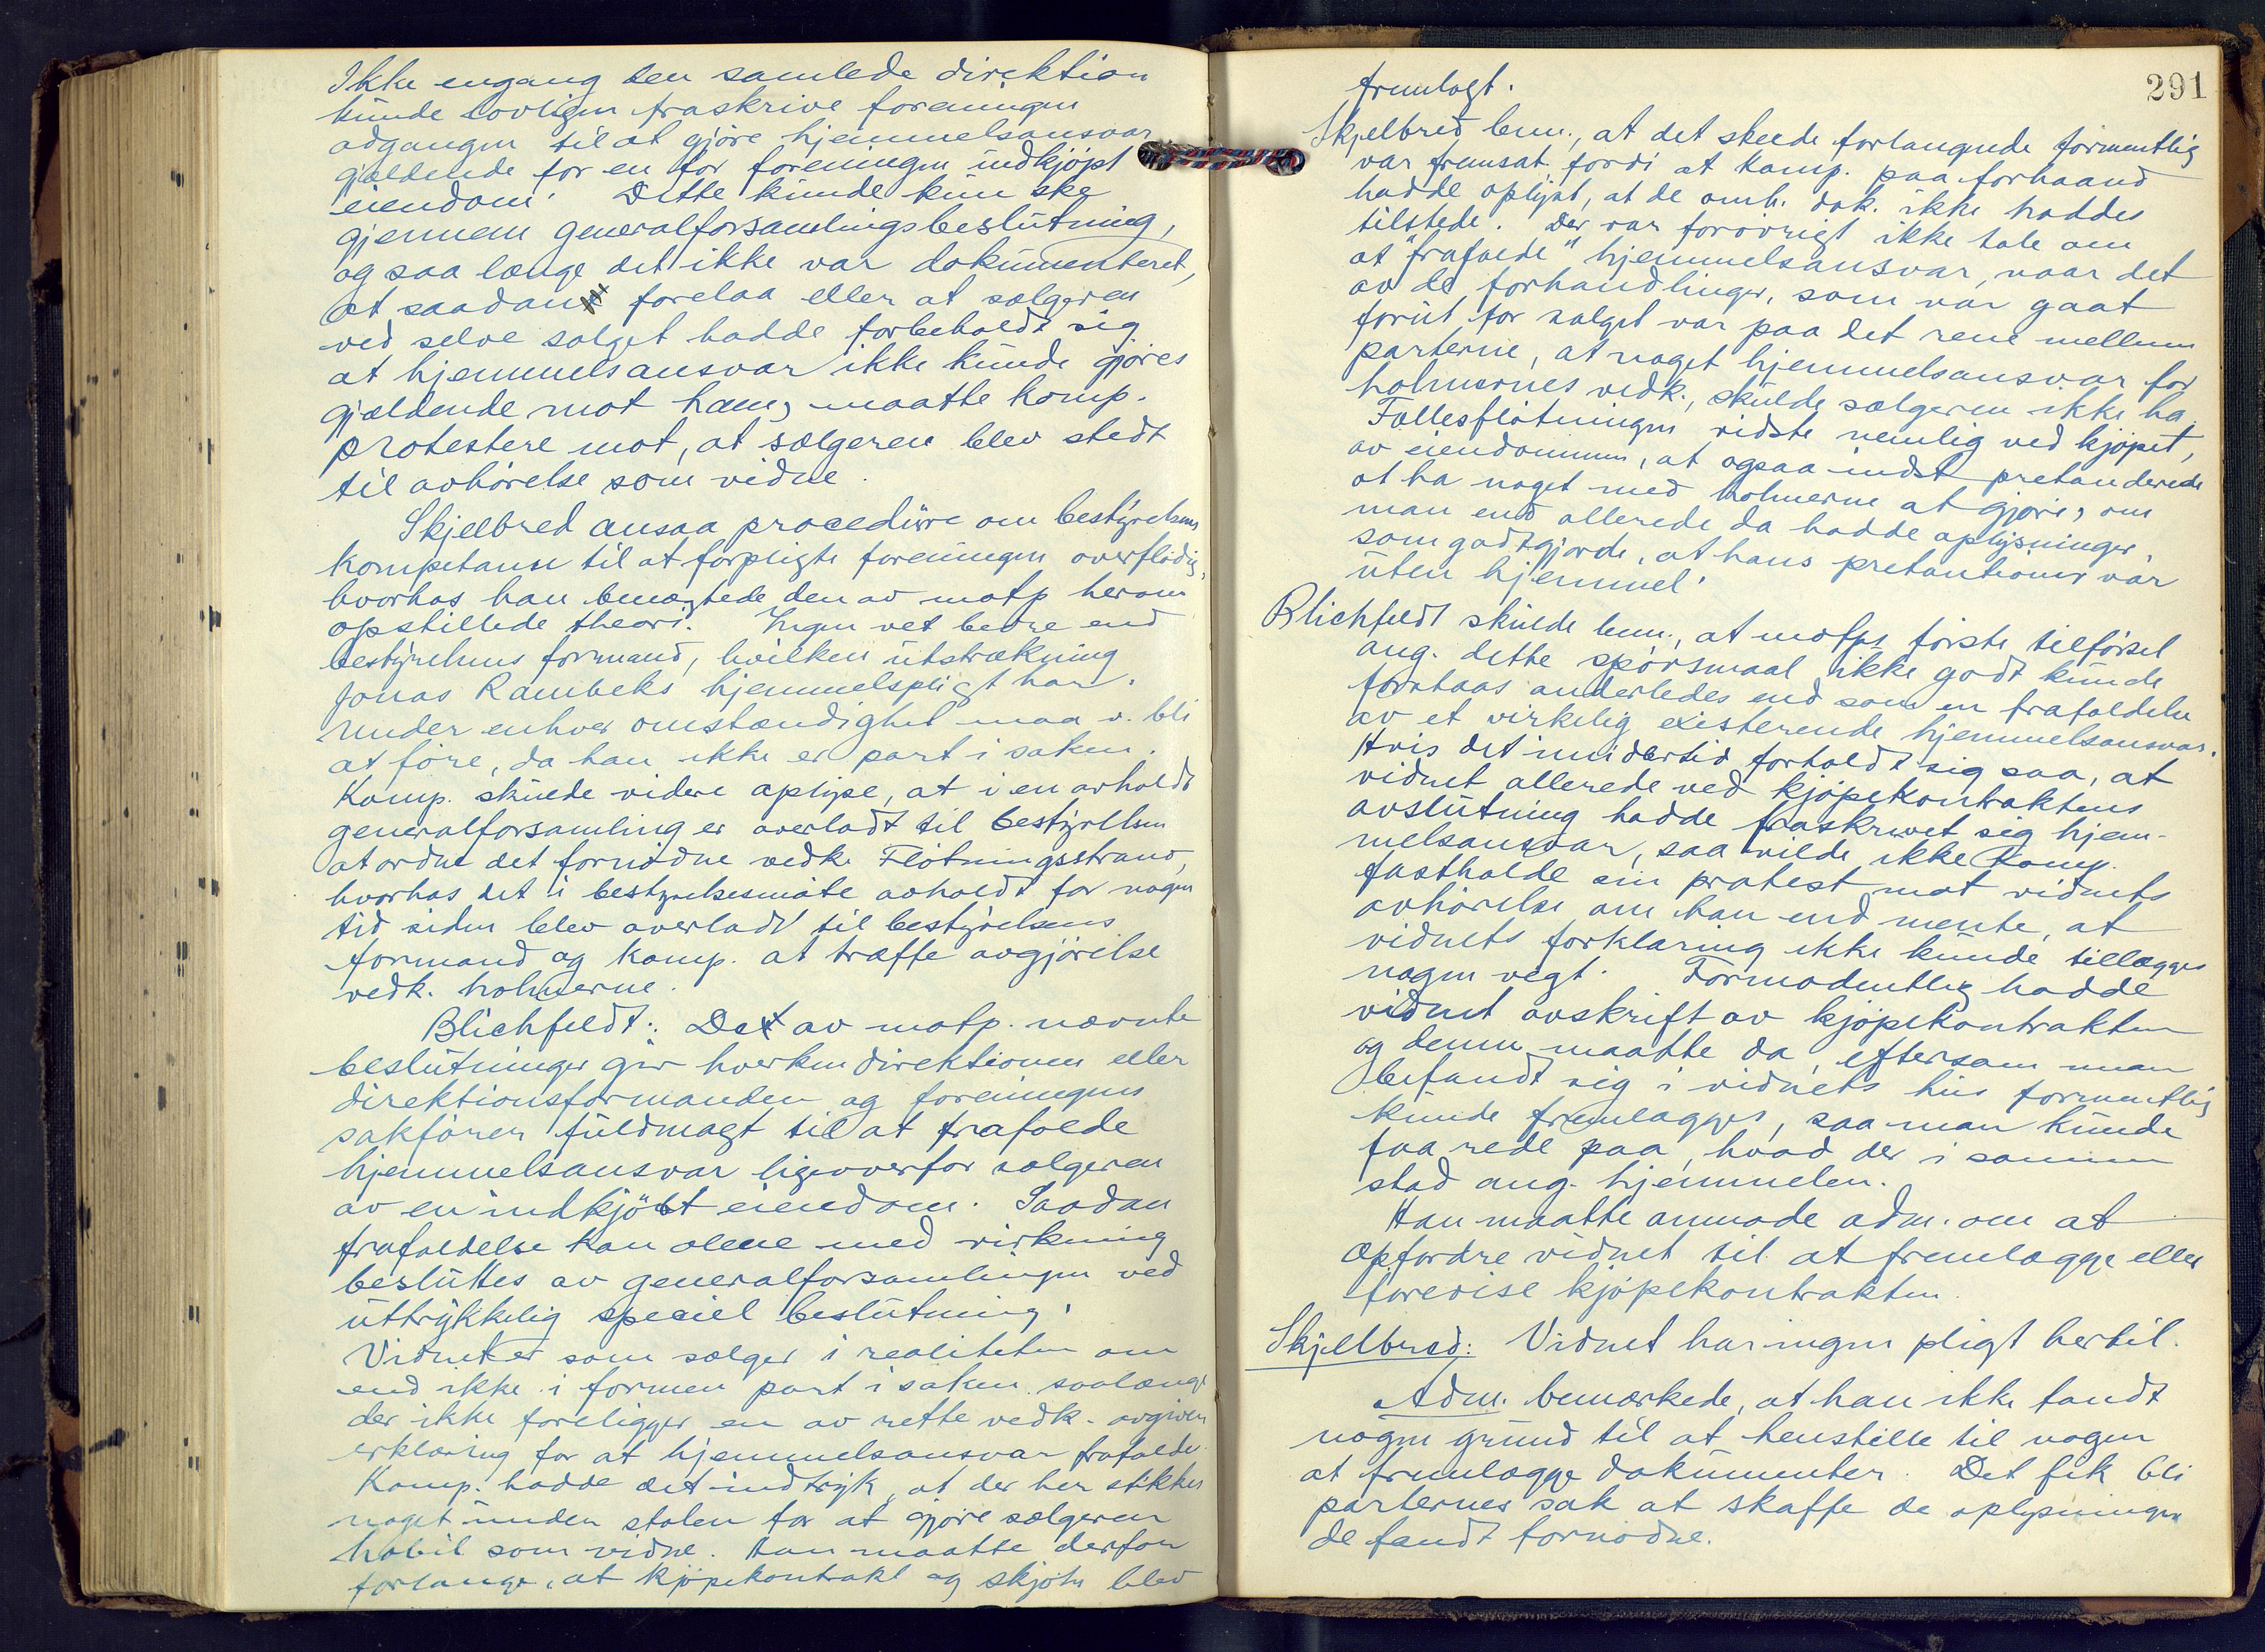 Ikke engang den samlede direktion
kunde lovligen fraskrive foreningen
adgangen til at gjøre hjemmelsansvar
gjældende for en for foreningen indkjøpt
eiendom. Dette kunde kun ske
gjennem generalforsamlingsbeslutning,
og saa længe det ikke var dokumenteret,
at saadan forelaa eller at sælgeren
ved selve salget hadde forbeholdt sig
at hjemmelsansvar ikke kunde gjøres
gjældende mot ham, maatte komp.
protestere mot, at sælgeren blev stedt
til avhørelse som vidne.
Skjelbred ansaa procedüre om bestyrelsens
kompetanse til at forpligte foreningen overflødig,
hvorhos han benægtede den av motp herom
opstillede theori. Ingen vet bedre end
bestyrelsens formand, hvilken utstrækning
Jonas Rambeks hjemmelspligt har.
Under enhver omstændighet maa v. bli
at føre, da han ikke er part i saken.
Komp. skulde videre oplyse, at i en avholdt
generalforsamling er overladt til bestyrelsen
at ordne det fornødne vedk. Fløtningsstrand,
hvorhos det i bestyrelsesmøte avholdt for nogen
tid siden blev overladt til bestyrelsens
formand og komp. at træffe avgjørelse
vedk. holmerne.
Blichfeldt: Det av motp. nævnte
beslutninger gir hverken direktionen eller
direktionsformanden og foreningens
sakfører fuldmagt til at frafalde
hjemmelsansvar ligeoverfor sælgeren
av en indkjøbt eiendom. Saadan
frafaldelse kan alene med virkning
besluttes av generalforsamlingen ved
uttrykkelig speciel beslutning.
Vidnet er som sælger i realiteten om
end ikke i formen part i saken saalænge
der ikke foreligger en av rette vedk. avgiven
erklæring for at hjemmelsansvar frafalde.
Komp. hadde det indtryk, at der her stikker
noget under stolen for at gjøre sælgeren
habil som vidne. Han maatte derfor
forlange, at kjøpekontrakt og skjøte blev
291
fremlagt.
Skjelbred bem., at det skeede forlangende formentlig
var fremsat fordi at komp. paa forhaand
hadde oplyst, at de omh. dok. ikke haddes
tilstede. Der var forøvrigt ikke tale om
at "frafalde" hjemmelsansvar, naar det
av de forhandlinger, som var gaat
forut for salget var paa det rene mellem
parterne, at noget hjemmelsansvar for
holmernes vedk., skulde sælgeren ikke ha,
Fællesfløtningen vidste nemlig ved kjøpet,
av eiendommen, at ogsaa indst pretenderede
at ha noget med holmerne at gjøre, om
man end allerede da hadde oplysninger,
som godtgjorde, at hans pretentioner var
uten hjemmel.
Blichfeldt skulde bem., at motps første tilførsel
ang. dette spørsmaal ikke godt kunde
forstaaes anderledes end som en frafaldelse
av et virkelig existerende hjemmelsansvar.
Hvis det imidlertid forholdt sig saa, at
vidnet allerede ved kjøpekontraktens
avslutning hadde fraskrevet sig hjem-
melsansvar, saa vilde ikke komp.
fastholde sin protest mot vidnets
avhørelse om han end mente, at
vidnets forklaring ikke kunde tillægges
nogen vegt. Formodentlig hadde
vidnet avskrift av kjøpekontrakten
og denne maatte da, eftersom man
befandt sig i vidnets hus formentlig
kunde fremlægges, saa man kunde
faa rede paa, hvad der i samme
stod ang. hjemmelen.
Han maatte anmode adm. om at
opfordre vidnet til at fremlægge eller
forevise kjøpekontrakten.
Skjelbred: Vidnet har ingen pligt hertil.
Adm. bemærkede, at han ikke fandt
nogen grund til at henstille til nogen
at fremlægge dokumenter. Det fik bli
parternes sak at skaffe de oplysninger
de fandt fornødne.